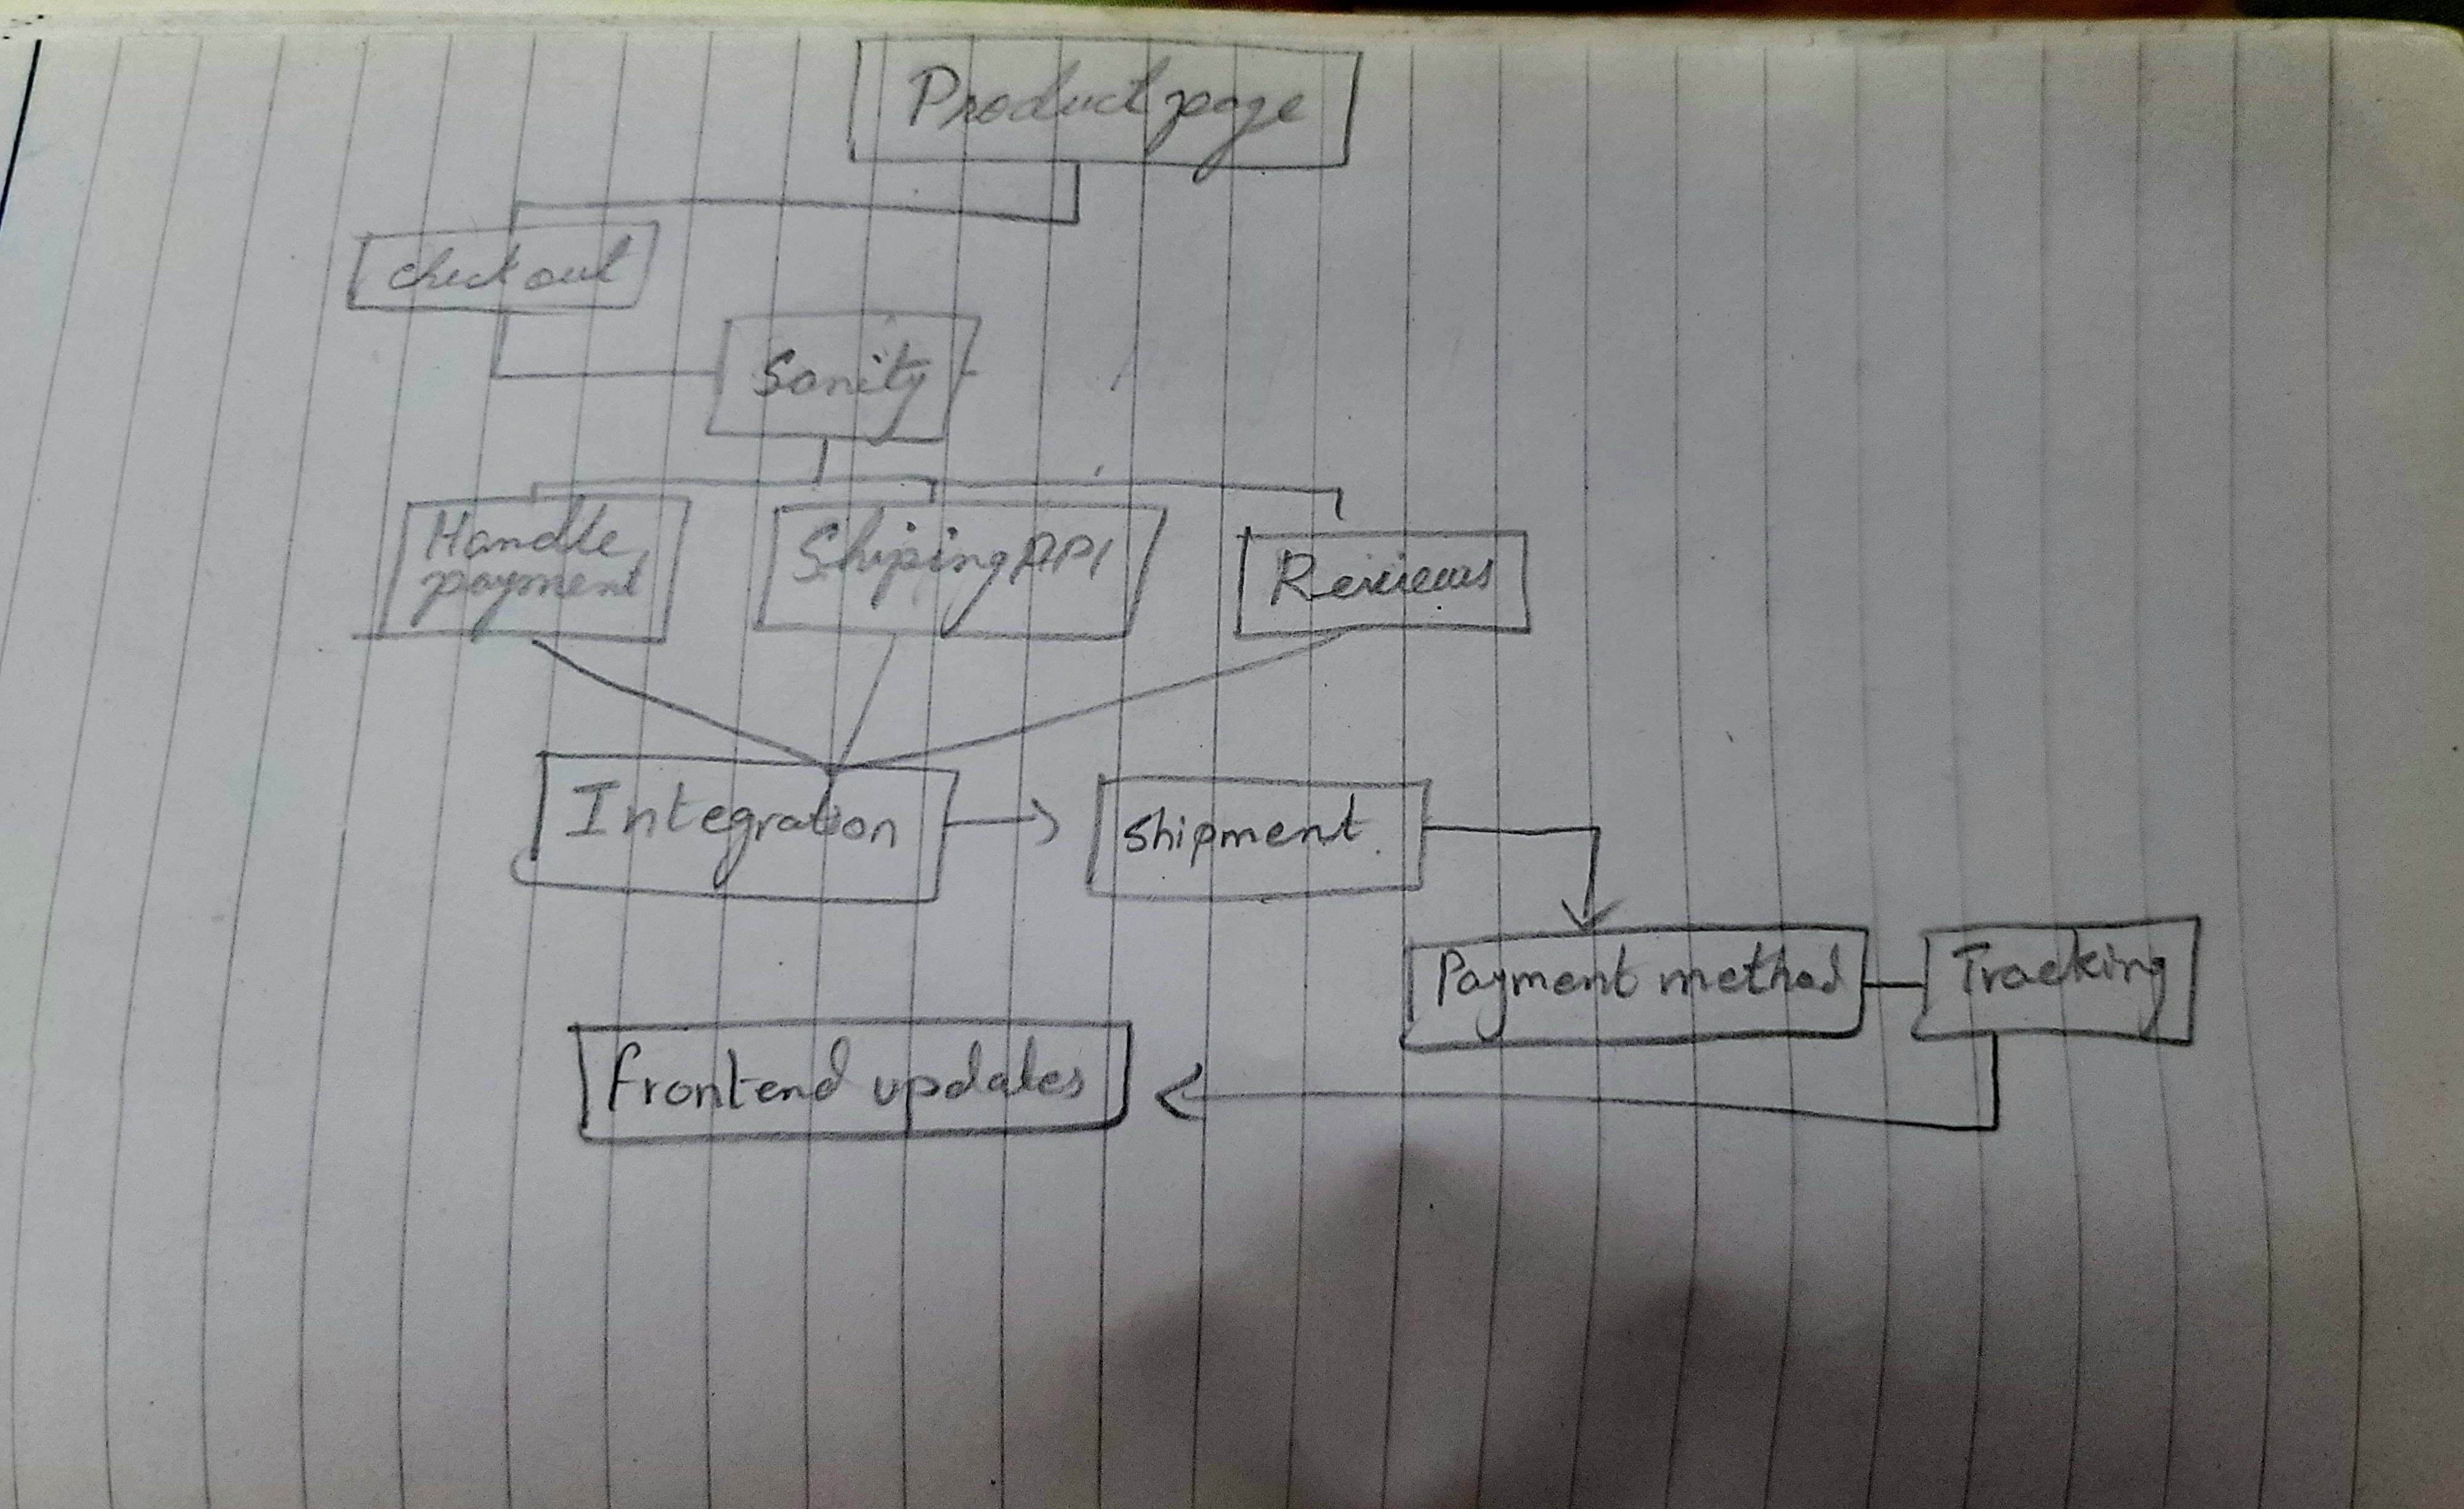 Product page
check out
Sanity
Handle
payment
Shiping API
Reviews
Integration
Shipment
Payment method
Tracking
frontend updates